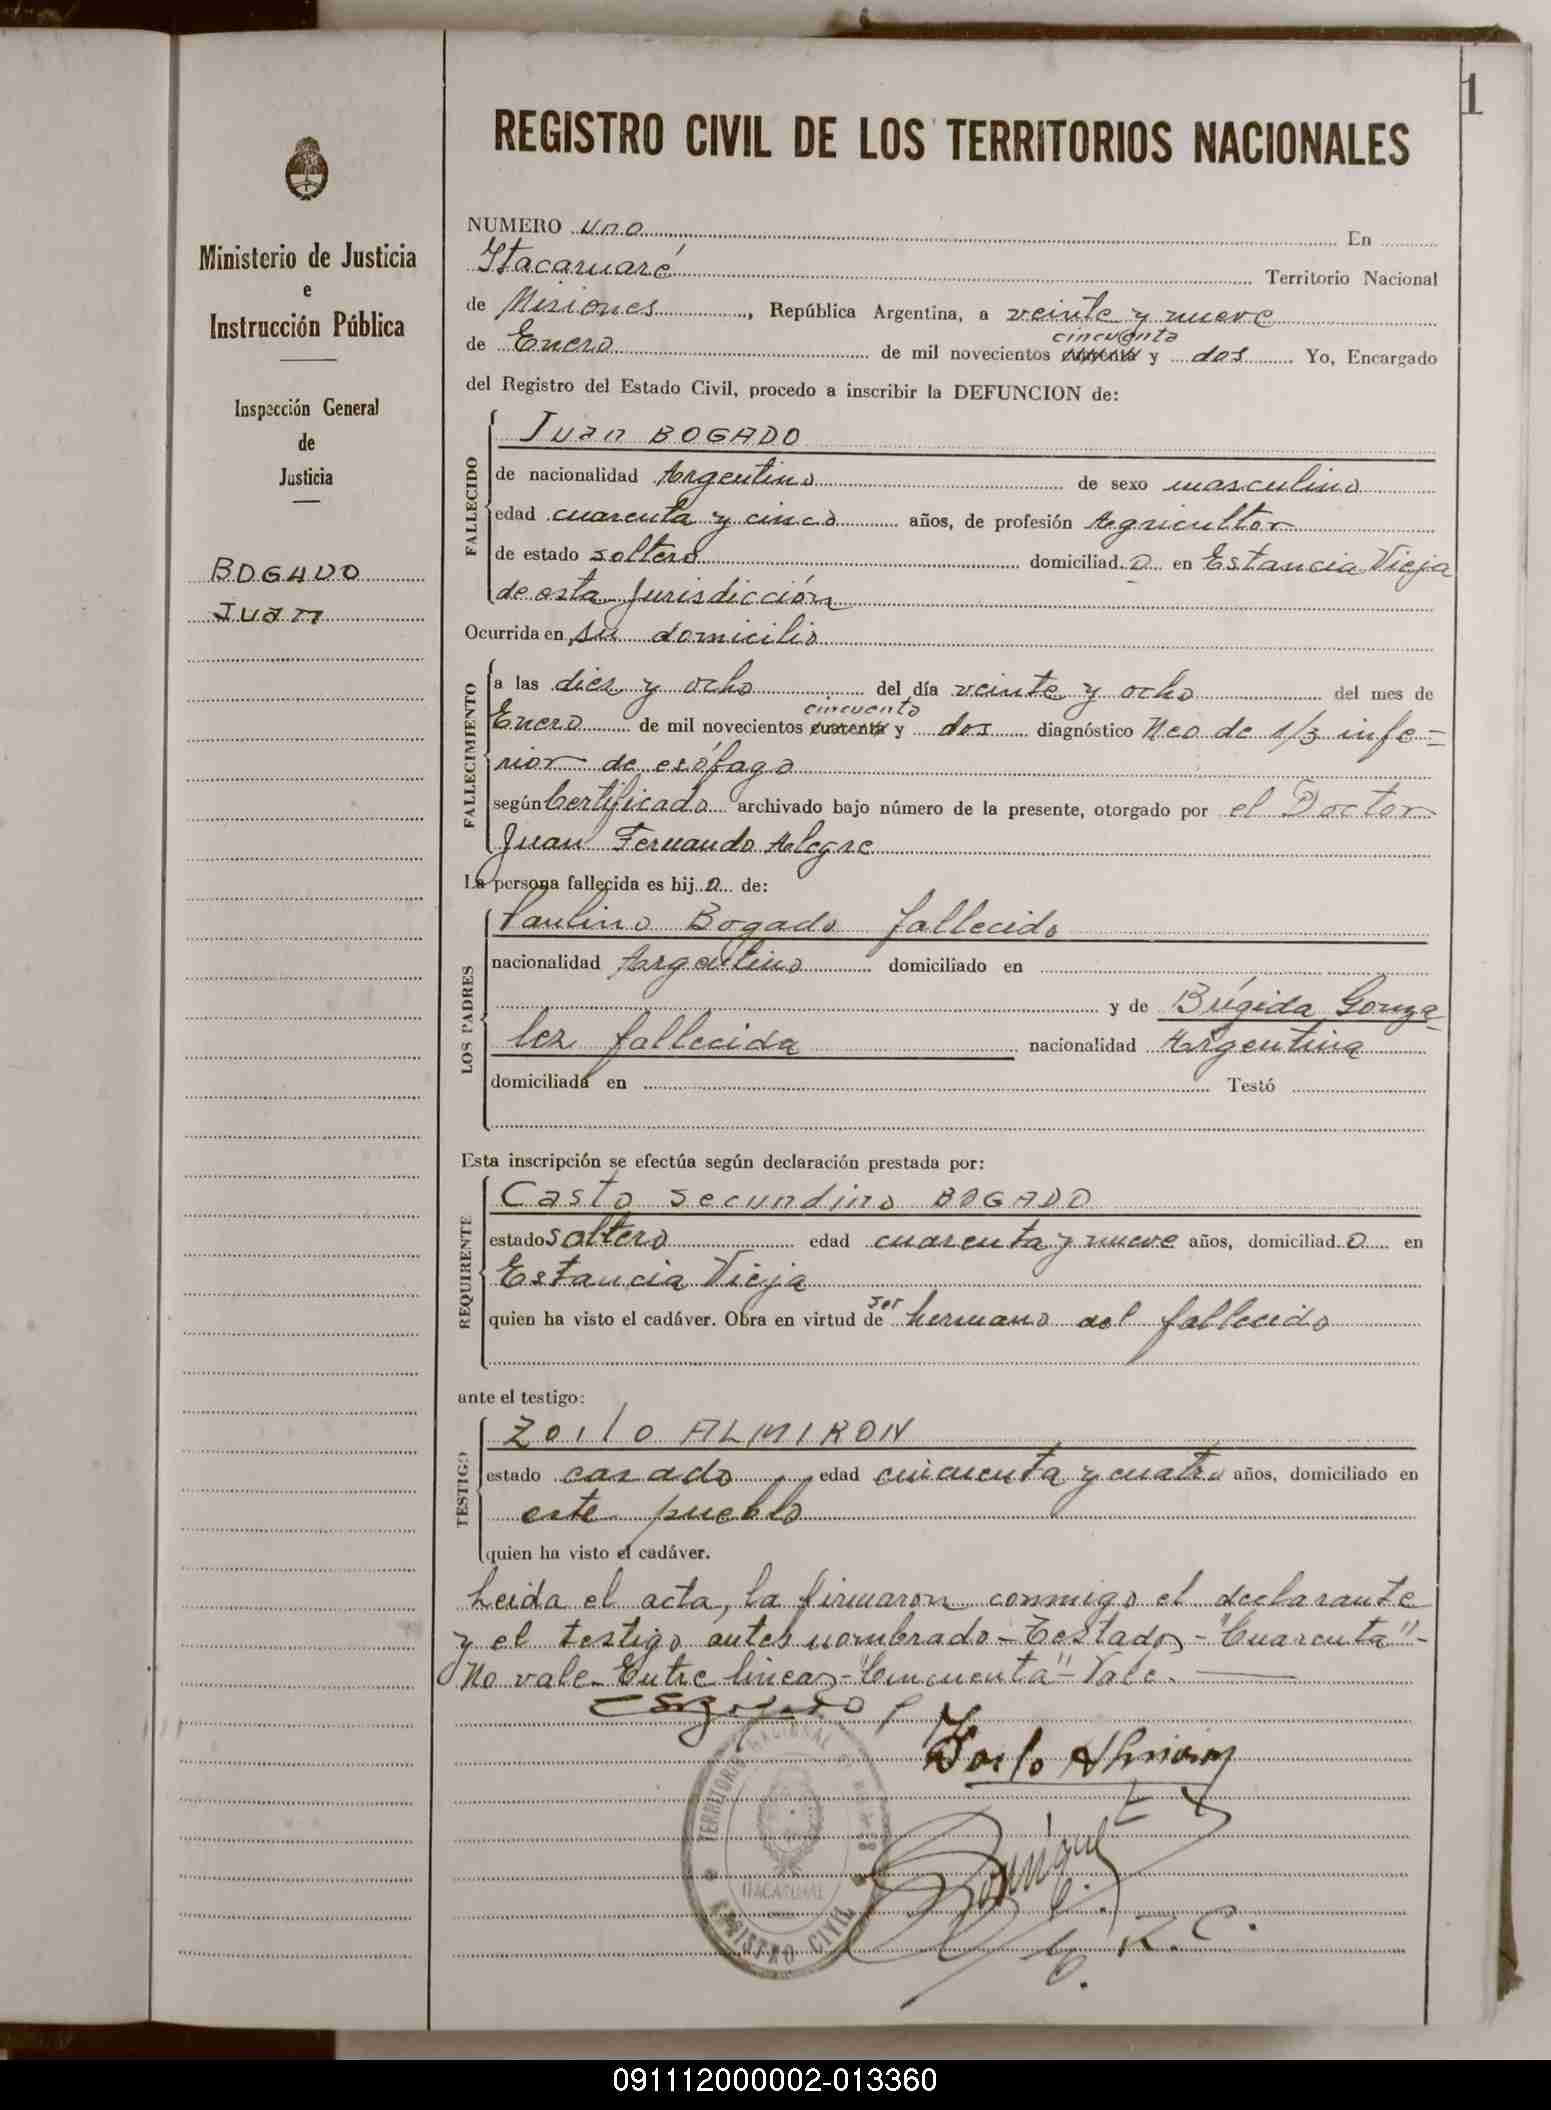 1
REGISTRO CIVIL DE LOS TERRITORIOS NACIONALES
Ministerio de Justicia
e
Instrucción Pública
Inspección General
de
Justicia
BOGADO
Juan
NUMERO uno En
Itacaruaré Territorio Nacional
de Misiones, República Argentina, a veinte y nueve
cincuenta
de Enero de mil novecientos cuarenta y dos Yo, Encargado
del Registro del Estado Civil, procedo a inscribir la DEFUNCION de:
FALLECIDO
Juan BOGADO
de nacionalidad Argentino de sexo masculino
edad cuarenta y cinco años, de profesión Agricultor
de estado soltero domiciliad o en Estancia Vieja
de esta Jurisdicción
Ocurrida en su domicilio
FALLECIMIENTO
a las diez y ocho del día veinte y ocho del mes de
cincuenta
Enero de mil novecientos cuarenta y dos diagnóstico Neo de 1/3 infe=
rior de esófago
según Certificado archivado bajo número de la presente, otorgado por el Doctor
Juan Fernando Alegre
La persona fallecida es hij o de:
LOS PADRES
Paulino Bogado fallecido
nacionalidad Argentino domiciliado en
y de Brígida Gonza
lez fallecida nacionalidad Argentina
domiciliada en Testó
Esta inscripción se efectúa según declaración prestada por:
REQUIRENTE
Casto Secundino BOGADO
estado soltero edad cuarenta y nueve años, domiciliad o en
Estancia Vieja
ser
quien ha visto el cadáver. Obra en virtud de hermano del fallecido
ante el testigo:
TESTIGO
Zoilo ALMIRON
estado casado edad cincuenta y cuatro años, domiciliado en
este pueblo
quien ha visto el cadáver.
Leida el acta, la firmaron conmigo el declarante
y el testigo antes nombrado - Testados - "Cuarenta" -
No vale - Entre lineas - "Cincuenta" - Vale.
Zoilo Almiron
TERRITORIO NACIONAL
ITACARUARE
REGISTRO CIVIL
E. R. C.
091112000002-013360